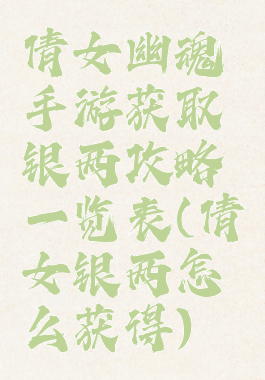 倩女幽魂
手游获取
银两攻略
一览表(倩
女银两怎
么获得)